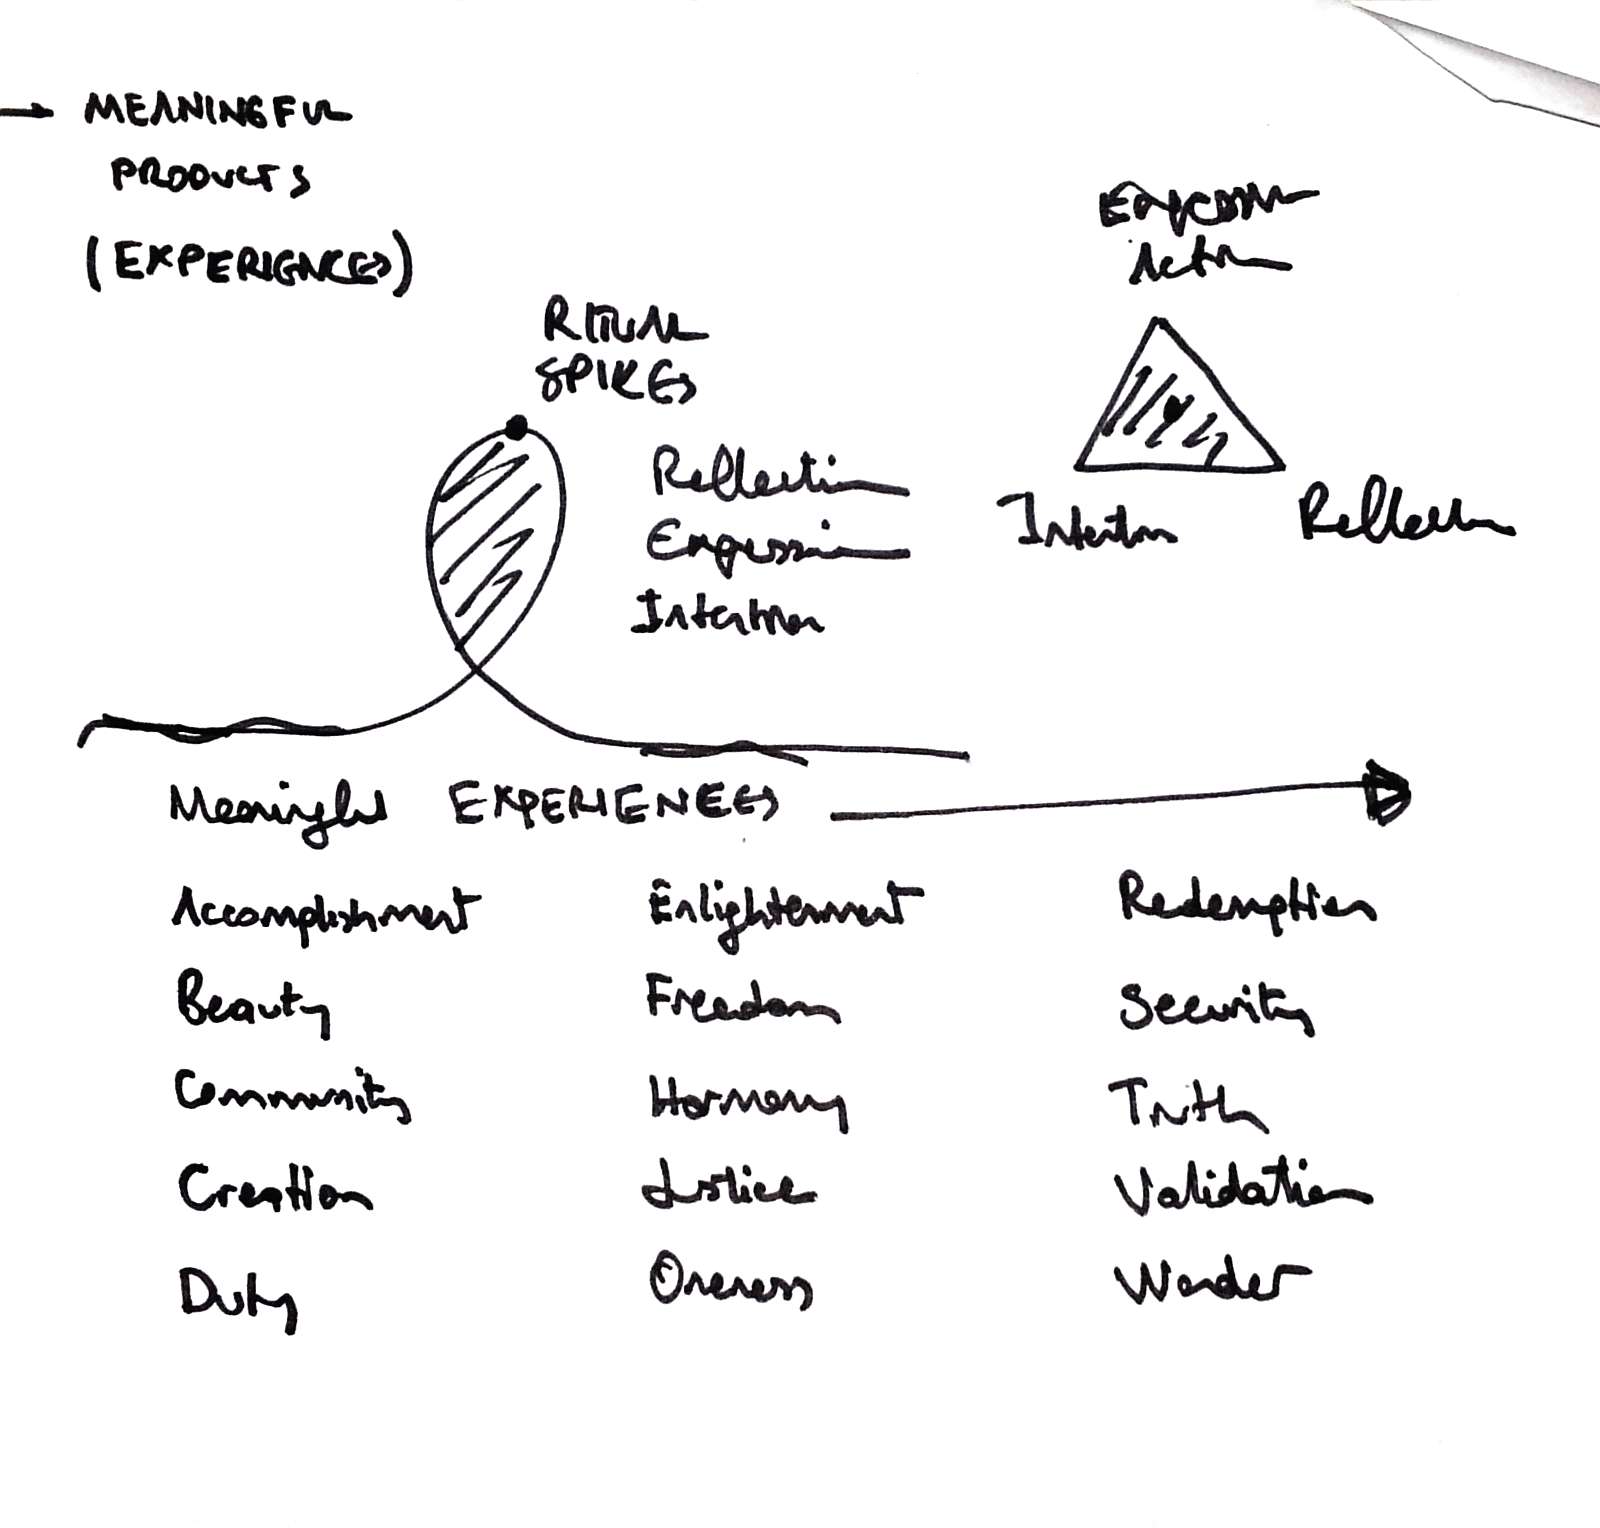 → MEANINGFUL
PRODUCTS
(EXPERIENCES)
RITUAL
SPIKES
Reflection
Expression
Intention
Expression
Action
Intention
Reflection
Meaningful EXPERIENCES
Accomplishment
Beauty
Community
Creation
Duty
Enlightenment
Freedom
Harmony
Justice
Oneness
Redemption
Security
Truth
Validation
Wonder